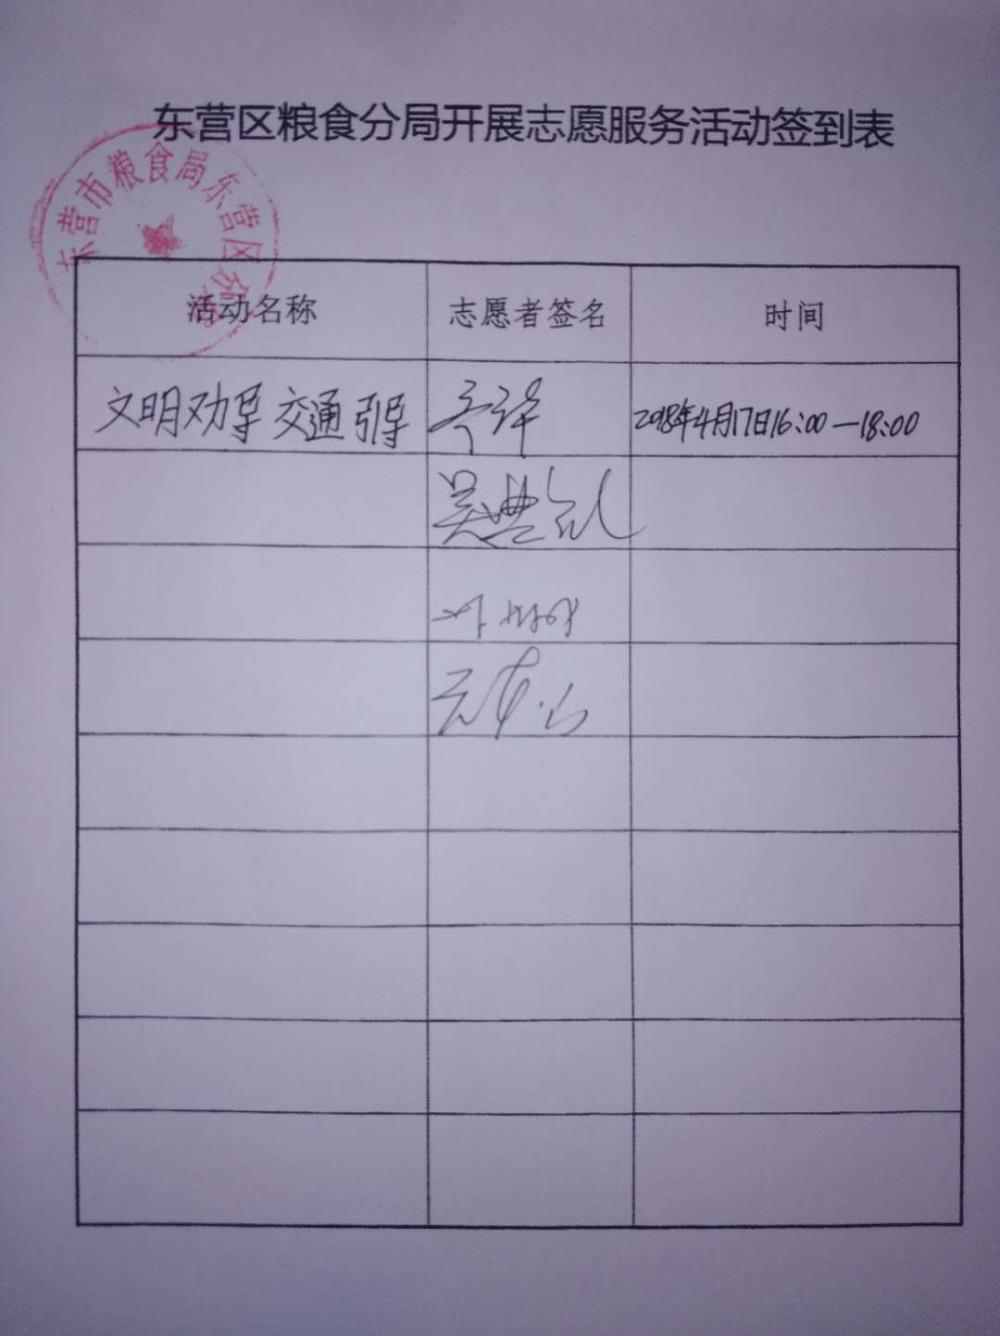 东营区粮食分局开展志愿服务活动签到表
东营市粮食局东营区分局
活动名称 志愿者签名 时间
文明劝导 交通引导 2018年4月17日16:00—18:00
吴典